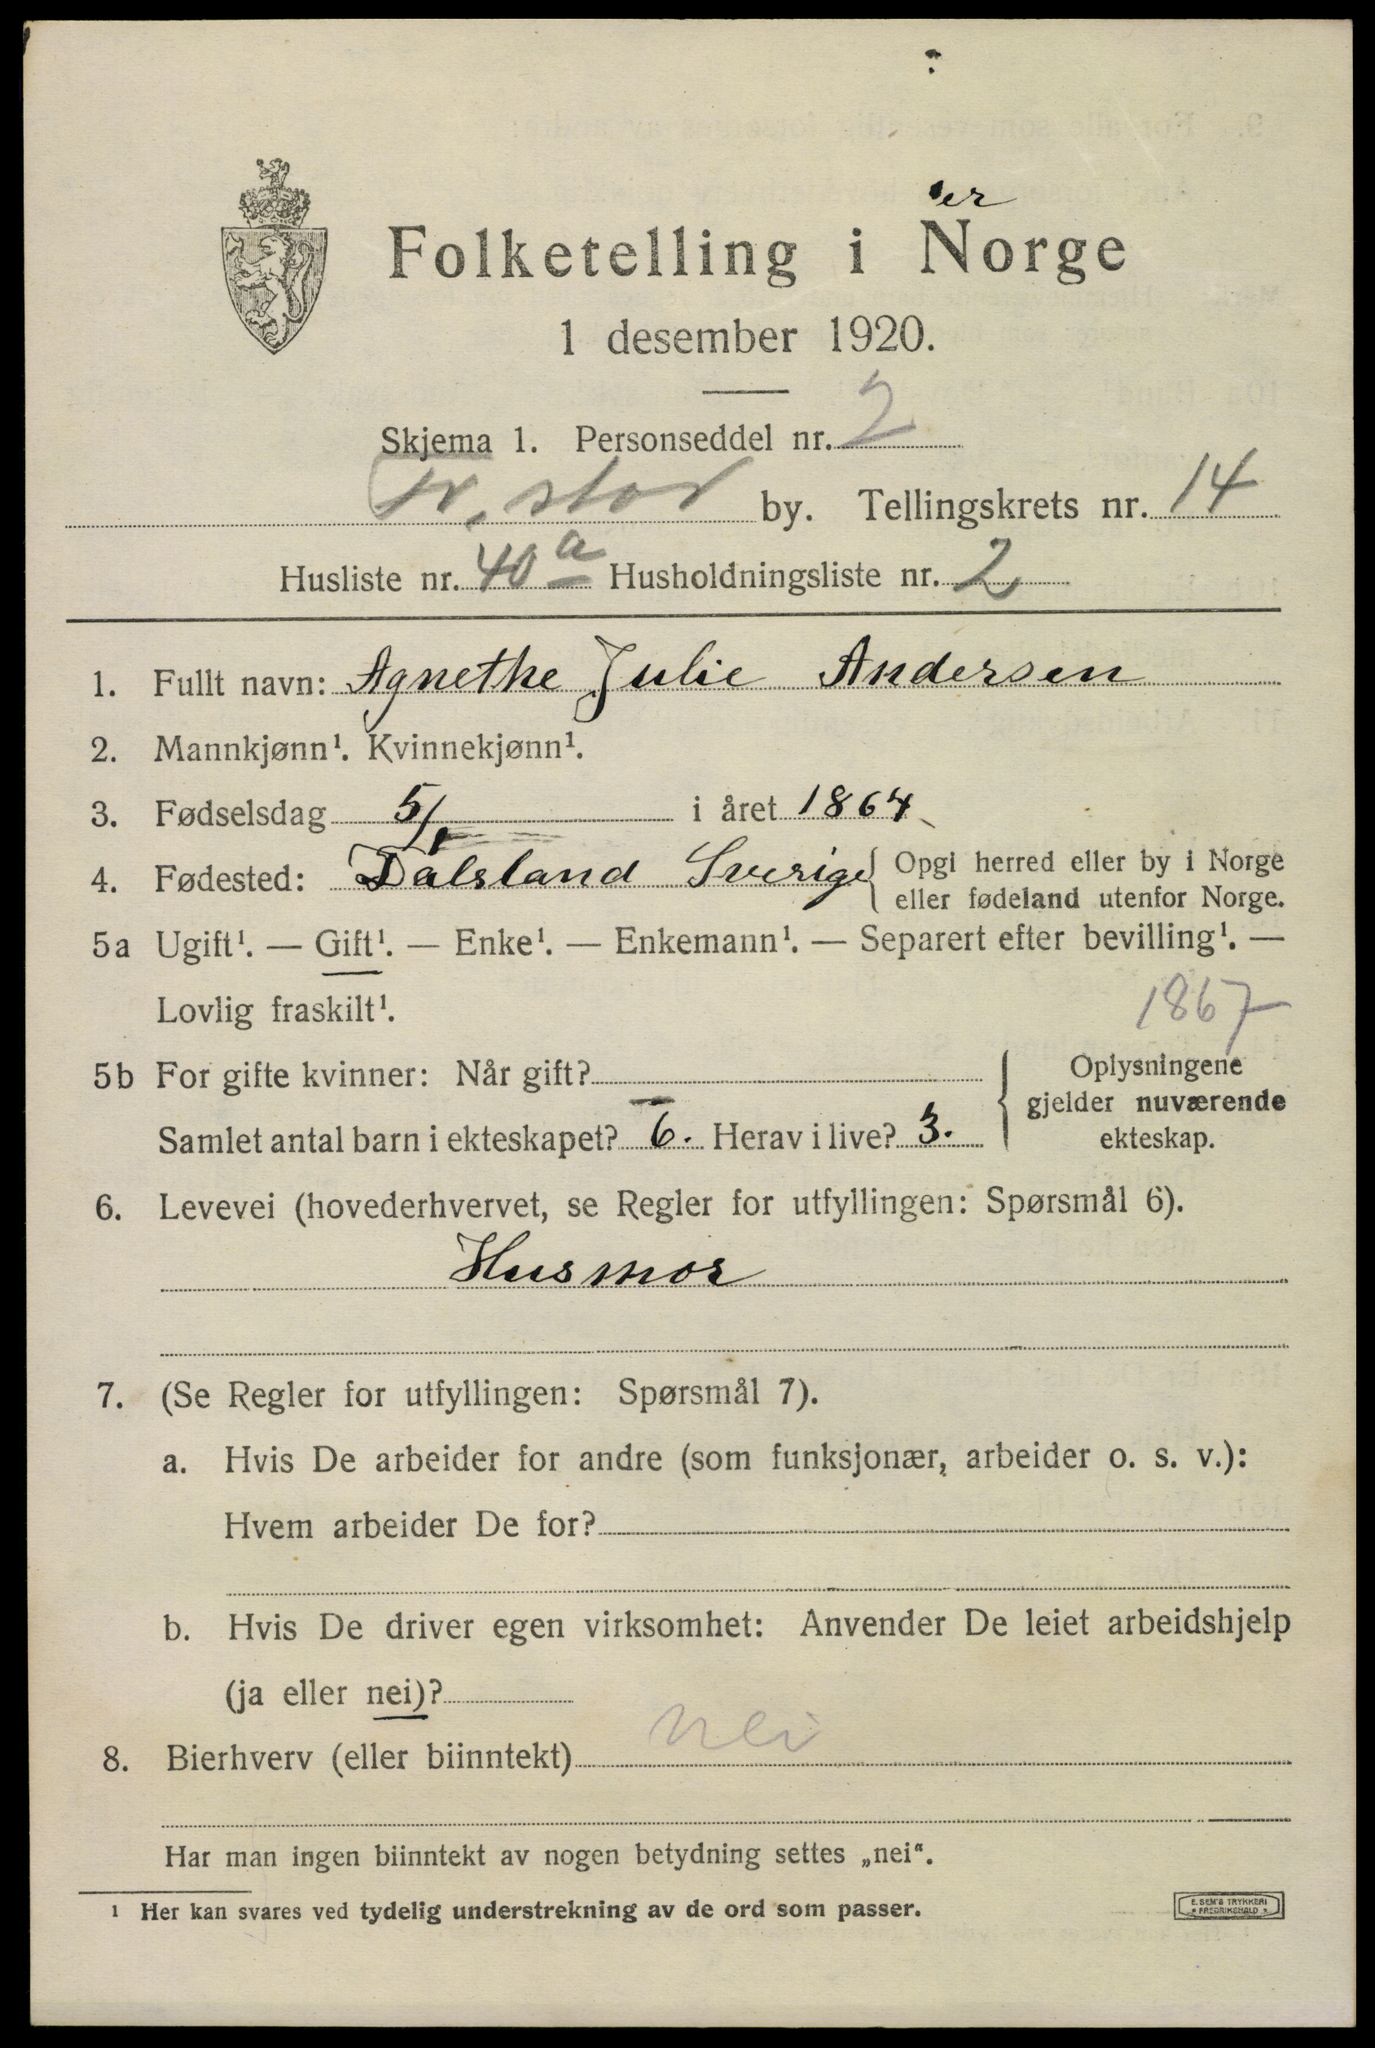 er
Folketelling i Norge
1 desember 1920.
Skjema 1. Personseddel nr. 2
Fr.stad by. Tellingskrets nr. 14
Husliste nr. 40a Husholdningsliste nr. 2
1. Fullt navn: Agnethe Julie Andersen
2. Mannkjønn¹. Kvinnekjønn¹.
3. Fødselsdag 5/ i året 1864
4. Fødested: Dalsland Sverige { Opgi herred eller by i Norge
eller fødeland utenfor Norge.
5a Ugift¹. — Gift¹. — Enke¹. — Enkemann¹. — Separert efter bevilling¹. —
Lovlig fraskilt¹.
1867
5b For gifte kvinner: Når gift? { Oplysningene
gjelder nuværende
Samlet antal barn i ekteskapet? 6. Herav i live? 3. ekteskap.
6. Levevei (hovederhvervet, se Regler for utfyllingen: Spørsmål 6).
Husmor
7. (Se Regler for utfyllingen: Spørsmål 7).
a. Hvis De arbeider for andre (som funksjonær, arbeider o. s. v.):
Hvem arbeider De for?
b. Hvis De driver egen virksomhet: Anvender De leiet arbeidshjelp
(ja eller nei)?
8. Bierhverv (eller biinntekt) nei
Har man ingen biinntekt av nogen betydning settes „nei“.
¹ Her kan svares ved tydelig understrekning av de ord som passer.
E. SEM'S TRYKKERI
* FREDRIKSHALD *